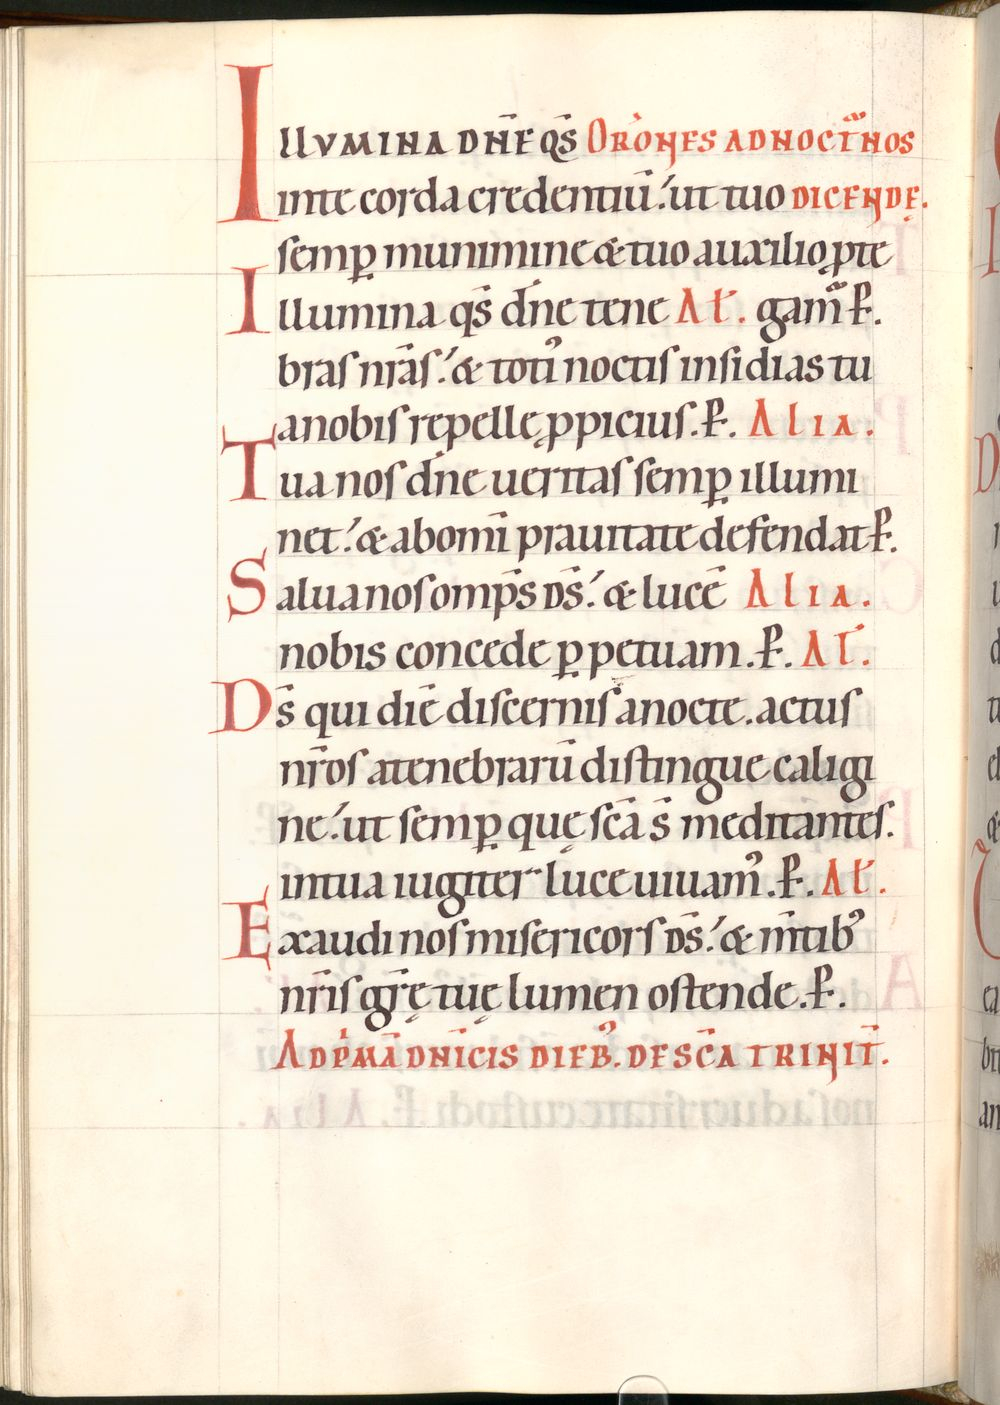 ILLUMINA DN̄E QS̄ OR̄ONES AD NOCT̄NOS
inte corda credentiū. ut tuo DICENDE.
semp̱ munimine & tuo auxilio p̱te
Illumina qs̄ dn̄e tene Al̄. gam̄ P̱.
bras nr̄as. & toti' noctis insidias tu
a nobis repelle p̱picius. P̱. Alia.
Tua nos dn̄e ueritas semp̱ illumi
net. & ab om̄i prauitate defendat P̱.
Salua nos omp̄s ds̄. & lucē Alia.
nobis concede p̱petuam. P̱. Al̄.
Ds̄ qui diē discernis a nocte. actus
nr̄os a tenebrarū distingue caligi
ne. ut semp̱ quę sc̄a s̄ meditantes.
in tua iugiter luce uiuam'. P̱. Al̄.
Exaudi nos misericors ds̄. & m̄tib'
nr̄is gr̄ę tuę lumen ostende. P̱.
AD P'MĀ DN̄ICIS DIEB'. DE SC̄A TRINIT̄.